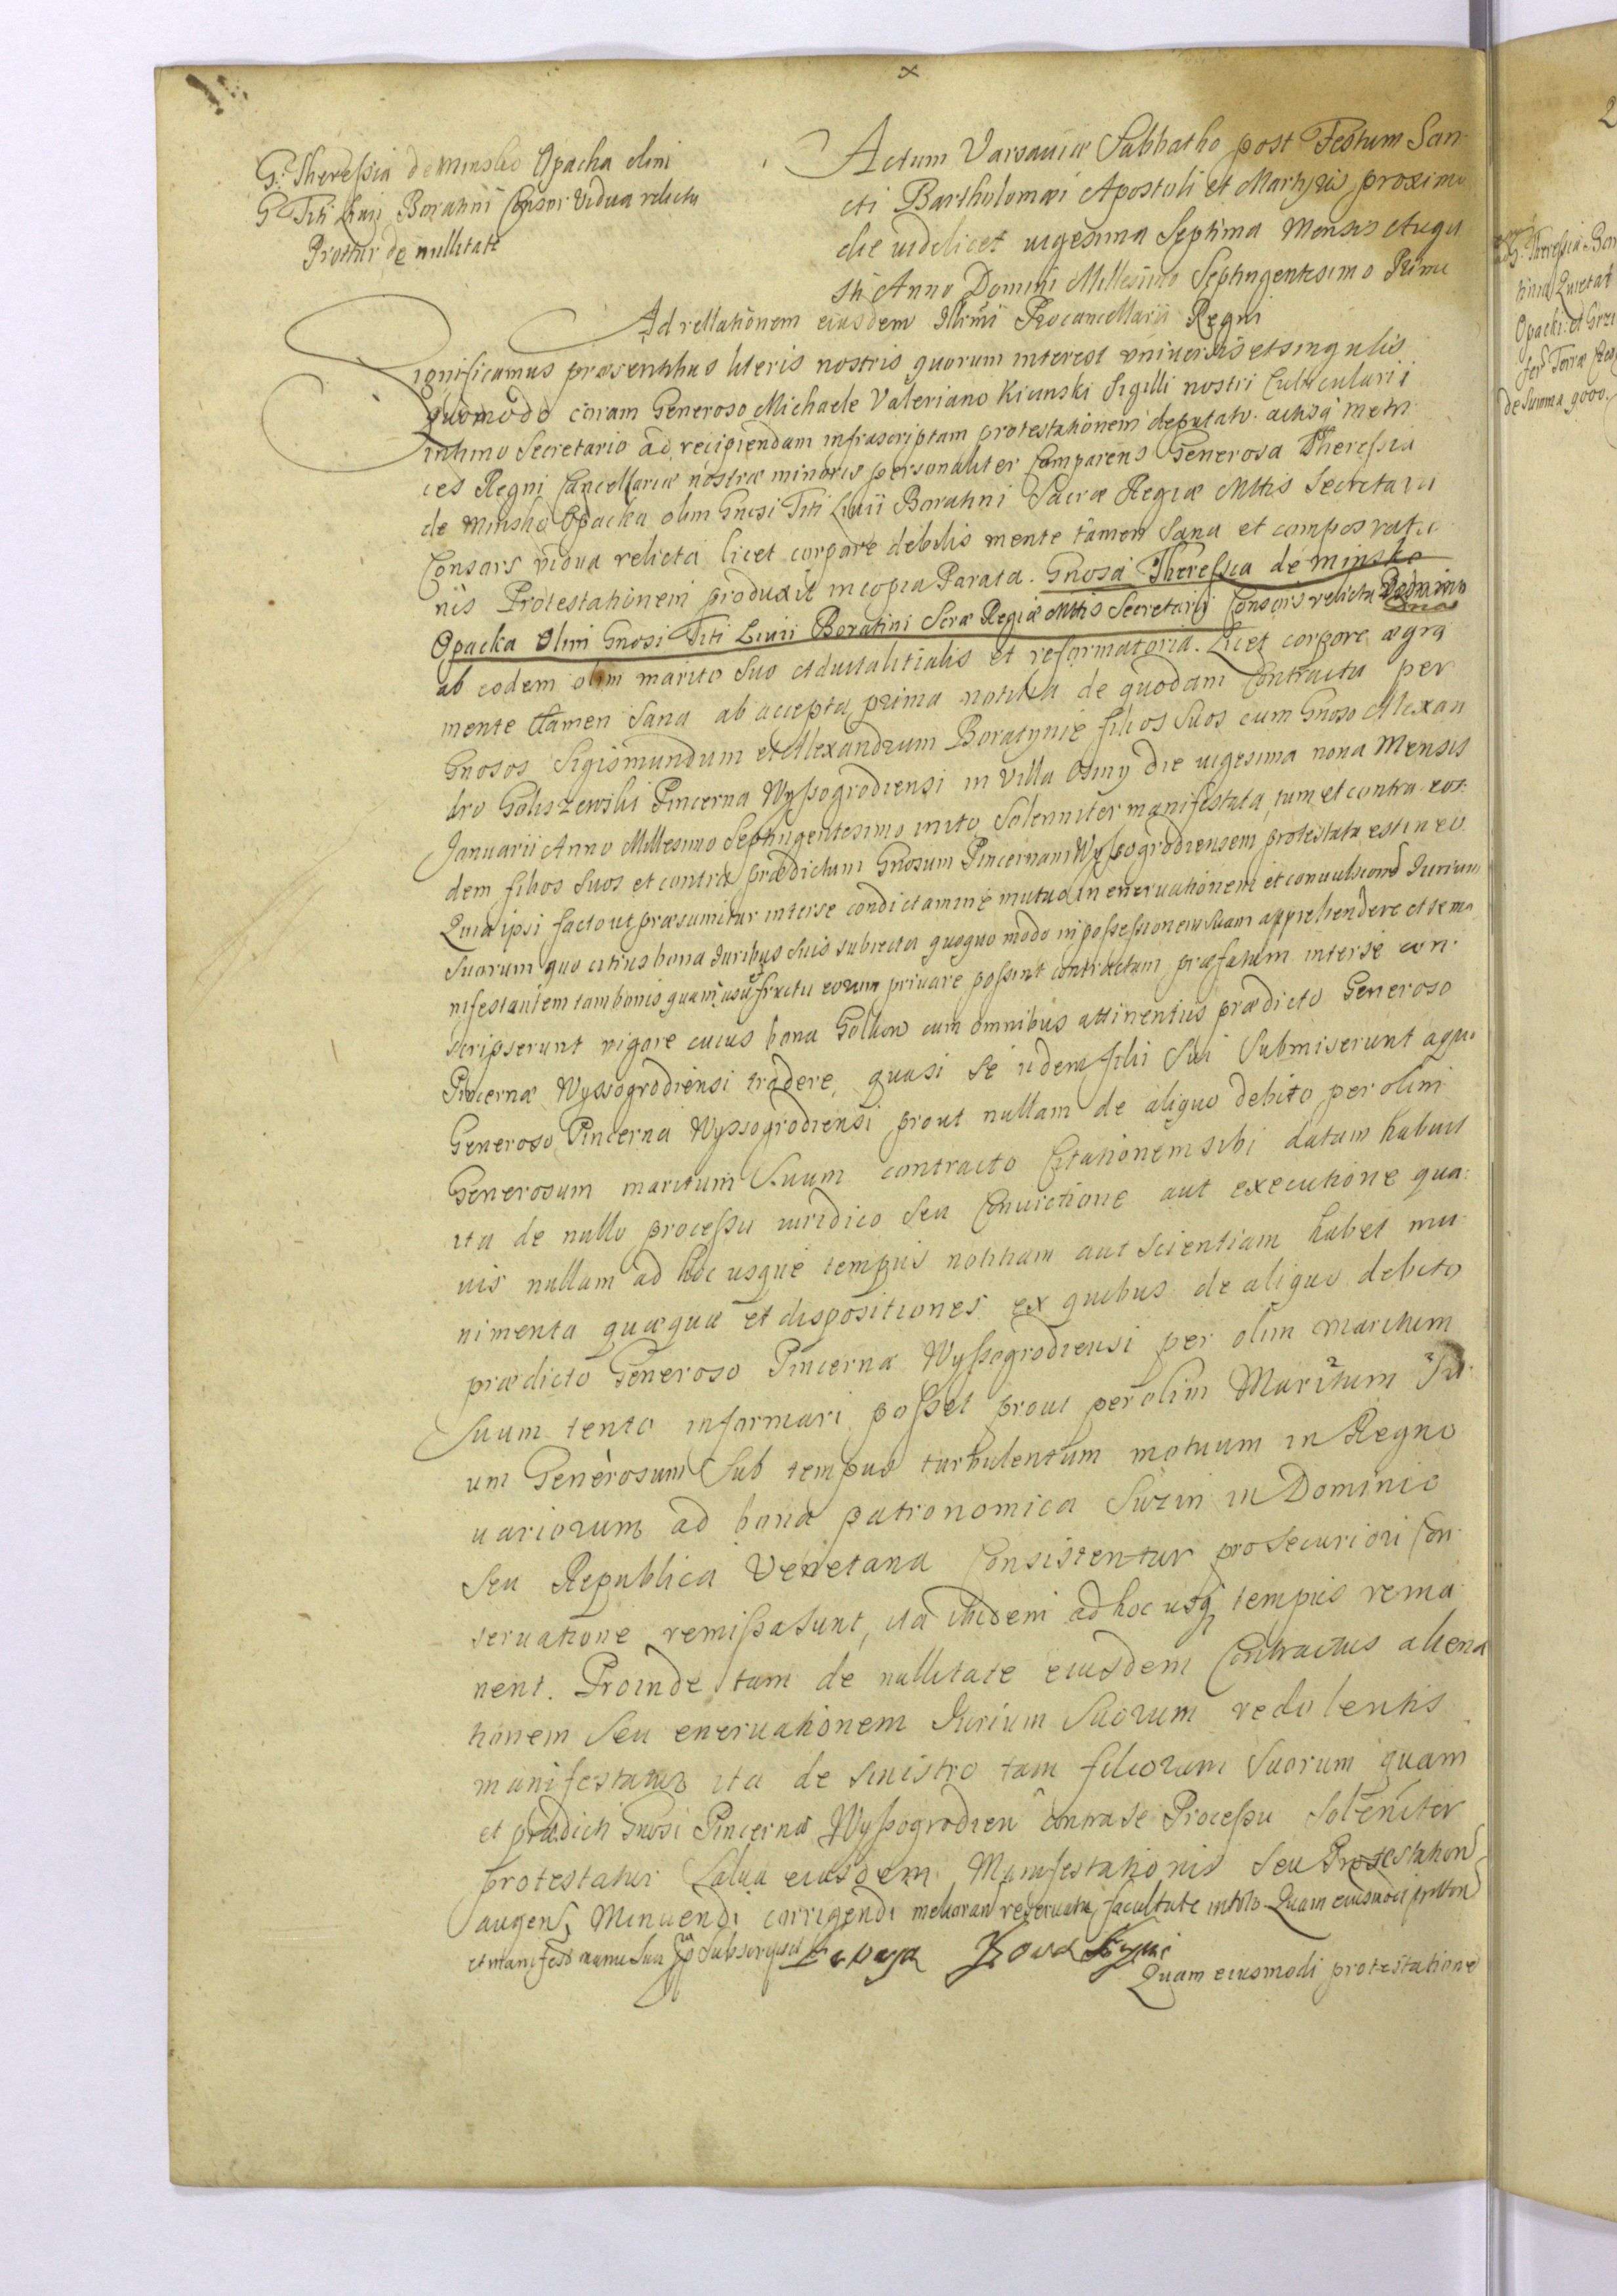 G. Theressia de Minsko Opacka olim
G. Titi Liuii Boratini Consor Vidua relicta
Prottur de nullitate
Actum Varsauiæ Sabbatho post Festum San-
cti Bartholomæi Apostoli et Martyris proximo
die uidelicet uigesima Septima Mensis Augu
sti Anno Domini Millesimo Septingentesimo Primo
Ad rellationem eiusdem Illrmi Procancellarii Regni
Significamus præsentibus literis nostris quorum interest vniuersis et singulis
quomodo coram Generoso Michaele Valeriano Kicinski Sigilli nostri Cubicularii
intimo Secretario ad recipiendam infrascriptam protestationem deputato actisq metri
ces Regni Cancellariæ nostræ minoris personaliter Comparens Generosa Theressia
de Minsko Opacka olim Gnosi Titi Liuii Boratini Sacræ Regiæ Mttis Secretarii
Consors vidua relicta licet corpore debilis mente tamen Sana et compos ratio
nis Protestationem produxit in copia Parata. Gnosa Theressia de Minsko
Opacka Olim Gnosi Titi Liuii Boratini Scræ Regiæ Mttis Secretarij Consors relicta
ab eodem olim marito Suo aduitalitialis et reformatoria. Licet corpore ægra
mente tamen Sana ab accepta prima notitia de quodam Contractu per
Gnosos Sigismundum et Alexandrum Boratynie filios Suos cum Gnoso Alexan
dro Goliszewski Pincerna Wyssogrodiensi in Villa Osiny die uigesima nona Mensis
Januarii Anno Millesimo Septingentesimo inito Solenniter manifestata, tum et contra eos-
dem filios Suos et contra prædictum Gnosum Pincernam Wyssogrodiensem protestata est in eo
Quia ipsi facto ut præsumitur inter se condictamine mutuo in eneruationem et conuulsione Jurium
Suorum quo citius bona Juribus Suis subiecta quoquo modo in possessionem suam apprehendere et se ma
nifestantem tam bonis quam usufructu eorum priuare possint contractum præfatum inter se con-
scripserunt vigore cuius bona Golkow cum omnibus attinentiis prædicto Generoso
Pincernæ Wyssogrodiensi tradere, quasi Se iidem filii Sui Submiserunt a quo
Generoso Pincerna Wyssogrodiensi prout nullam de aliquo debito per olim
Generosum maritum Suum contracto Citationem sibi datam habuit
ita de nullo processu iuridico seu Conuictione aut executione qua-
uis nullam ad hoc usque tempus notitiam aut scientiam habet mu
nimenta quæquæ et dispositiones ex quibus de aliquo debito
prædicto Generoso Pincernæ Wyssogrodiensi per olim maritum
Suum tento informari posset prout per olim Maritum Su-
um Generosum Sub tempus turbulentum motuum in Regno
uariorum ad bona patronomica Surin in Dominio
Seu Republica Venetana Consistentur pro securiori Con-
seruatione remissa sunt, ita ibidem ad hoc usq tempus rema
nent. Proinde tam de nullitate eiusdem Contractus aliena
tionem Seu eneruationem Jurium Suorum redolentis
manifestatur ita de sinistro tam filiorum Suorum quam
et prædicti Gnosi Pincernæ Wyssogrodien contra se Processu Soleniter
protestatur Salua eiusdem Manifestationis Seu Protestation
augen, Minuendi corrigendi melioran reseruata facultate in toto Quam eiusmodi ptton
et manifeso manu Sua Subscripsit
Quam eiusmodi protestatione